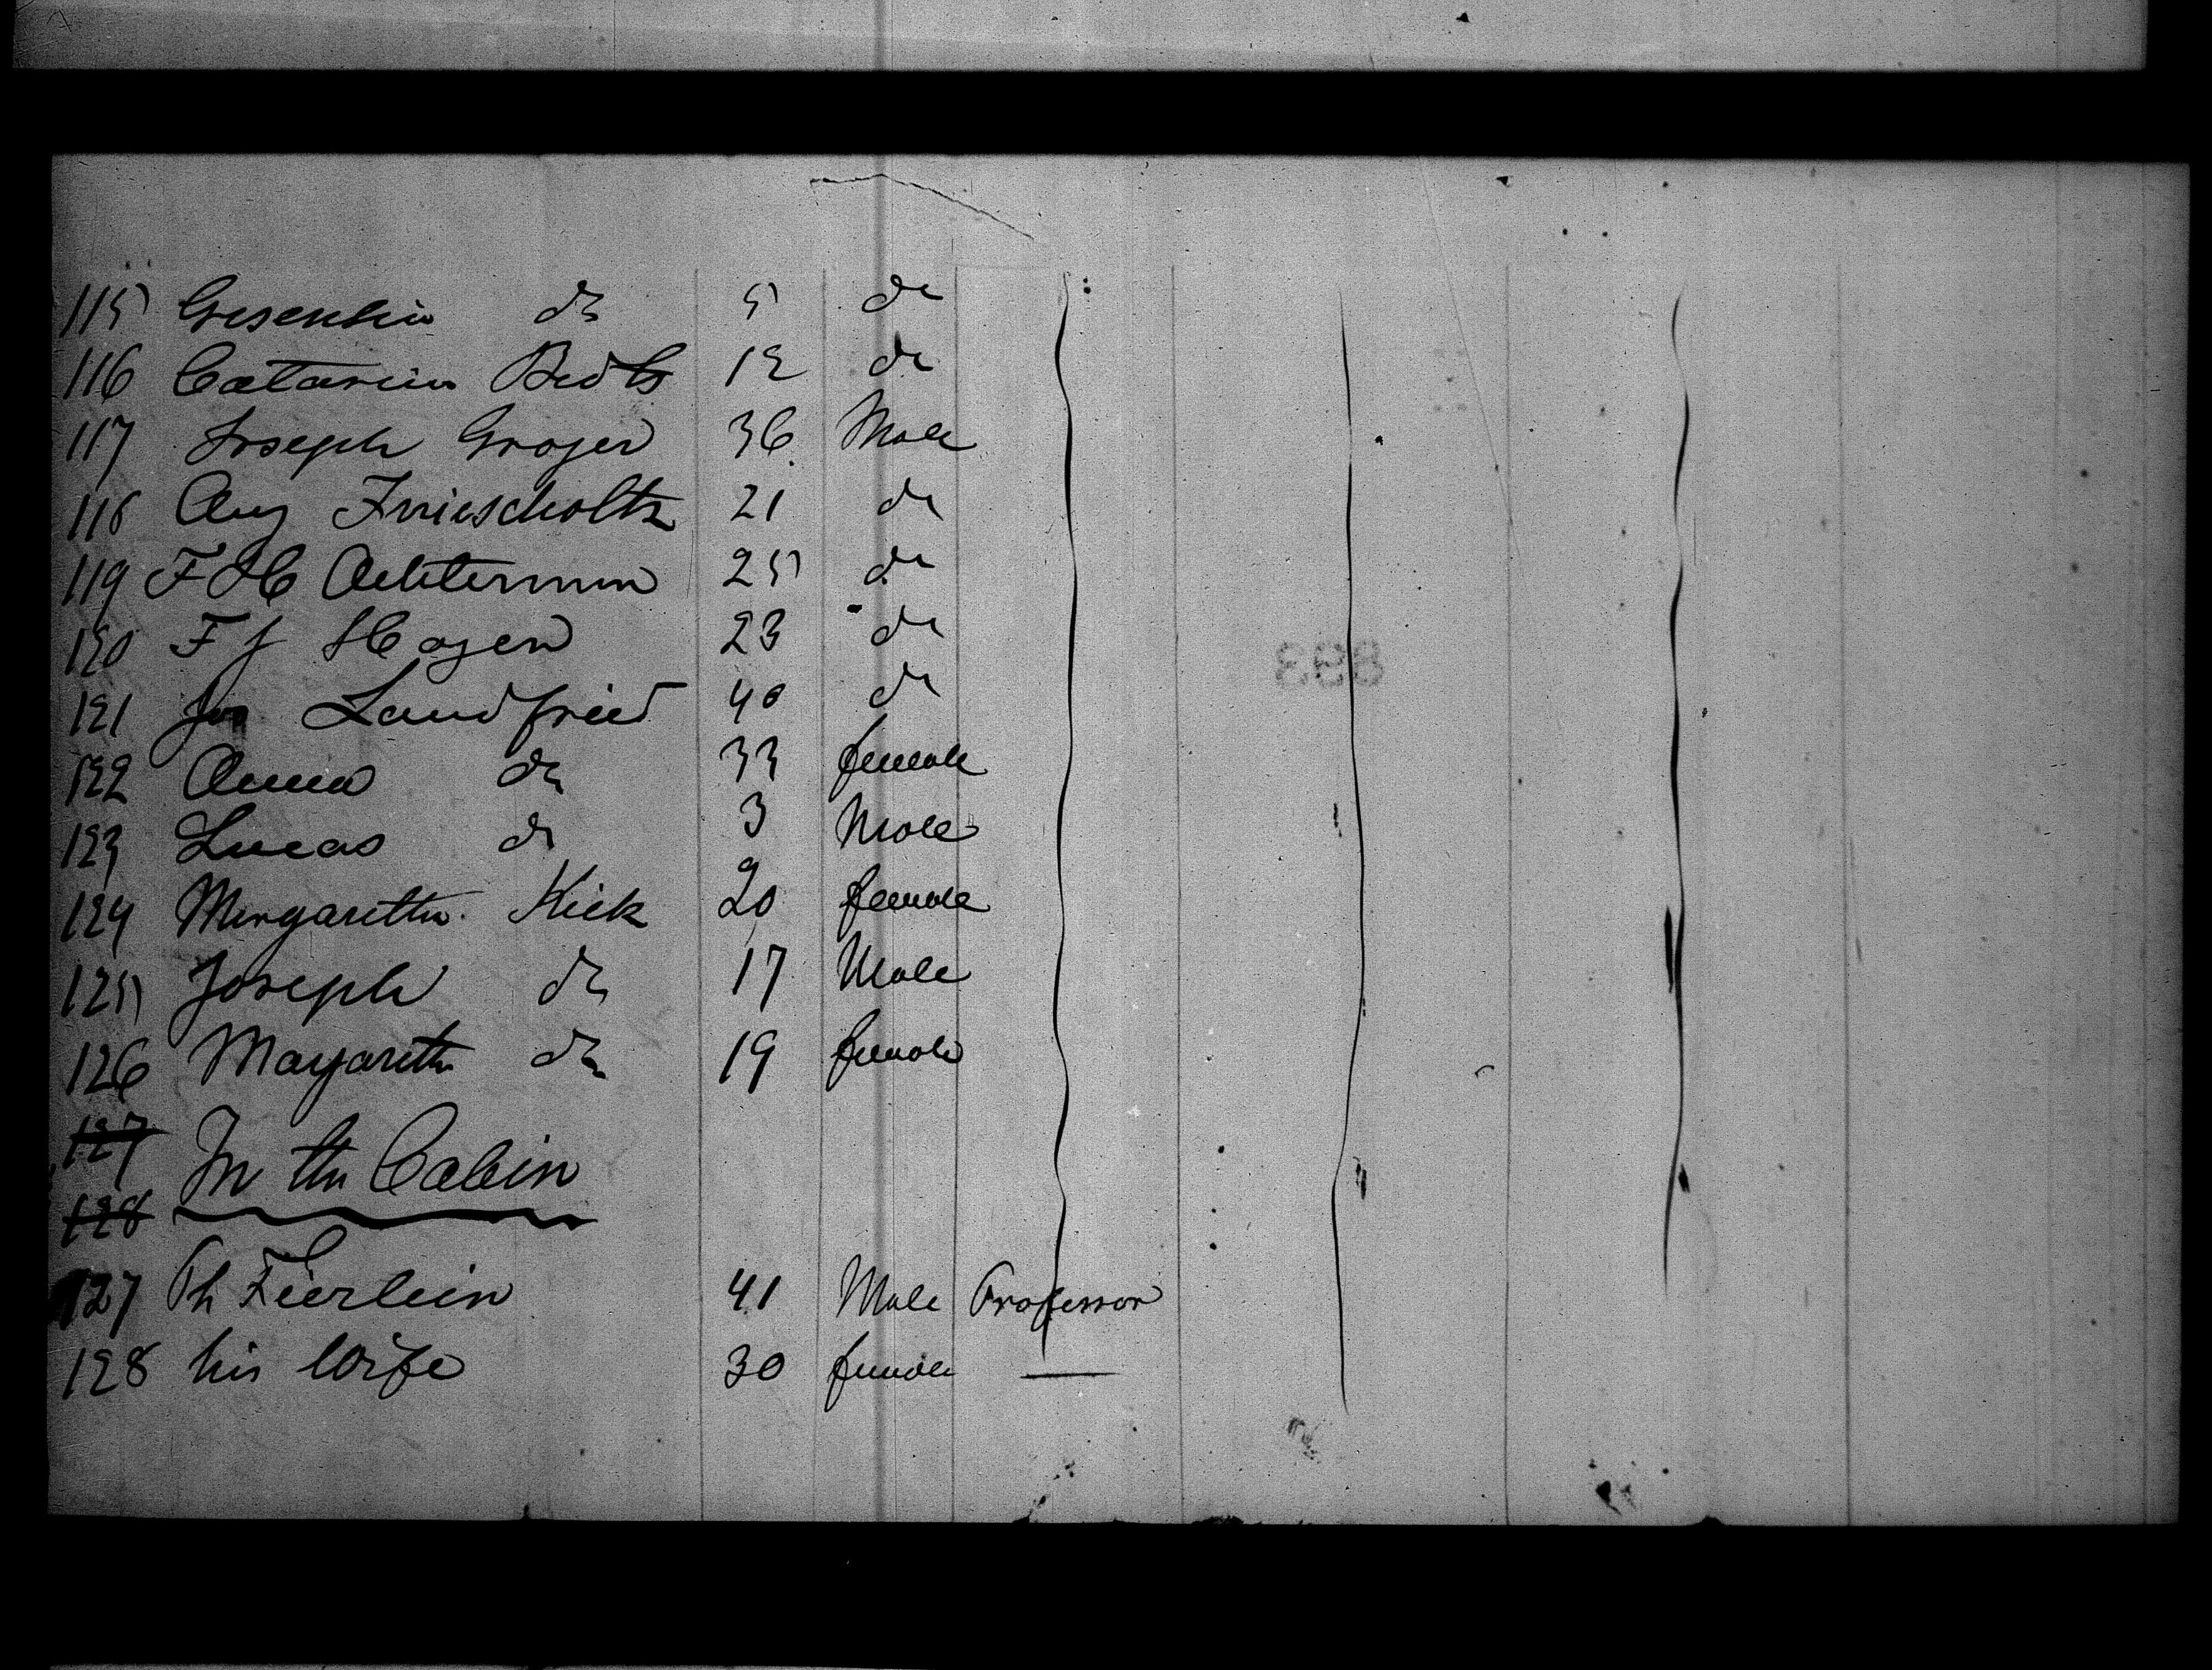 115 Gesenhin do 5 do
116 Catarina 12 do
117 Joseph Groger 36 Male
118 Aug Friescholtz 21 do
119 F H Achterman 25 do
120 F J Hagen 23 do
121 Jos Landfried 40 do
122 Anna do 33 female
123 Lucas do 3 Male
124 Margaretha Kick 20 female
125 Joseph do 17 Male
126 Margareth do 19 female
127
In the Cabin
128
127 Ph Feierlein 41 Male Professor
128 his Wife 30 female —